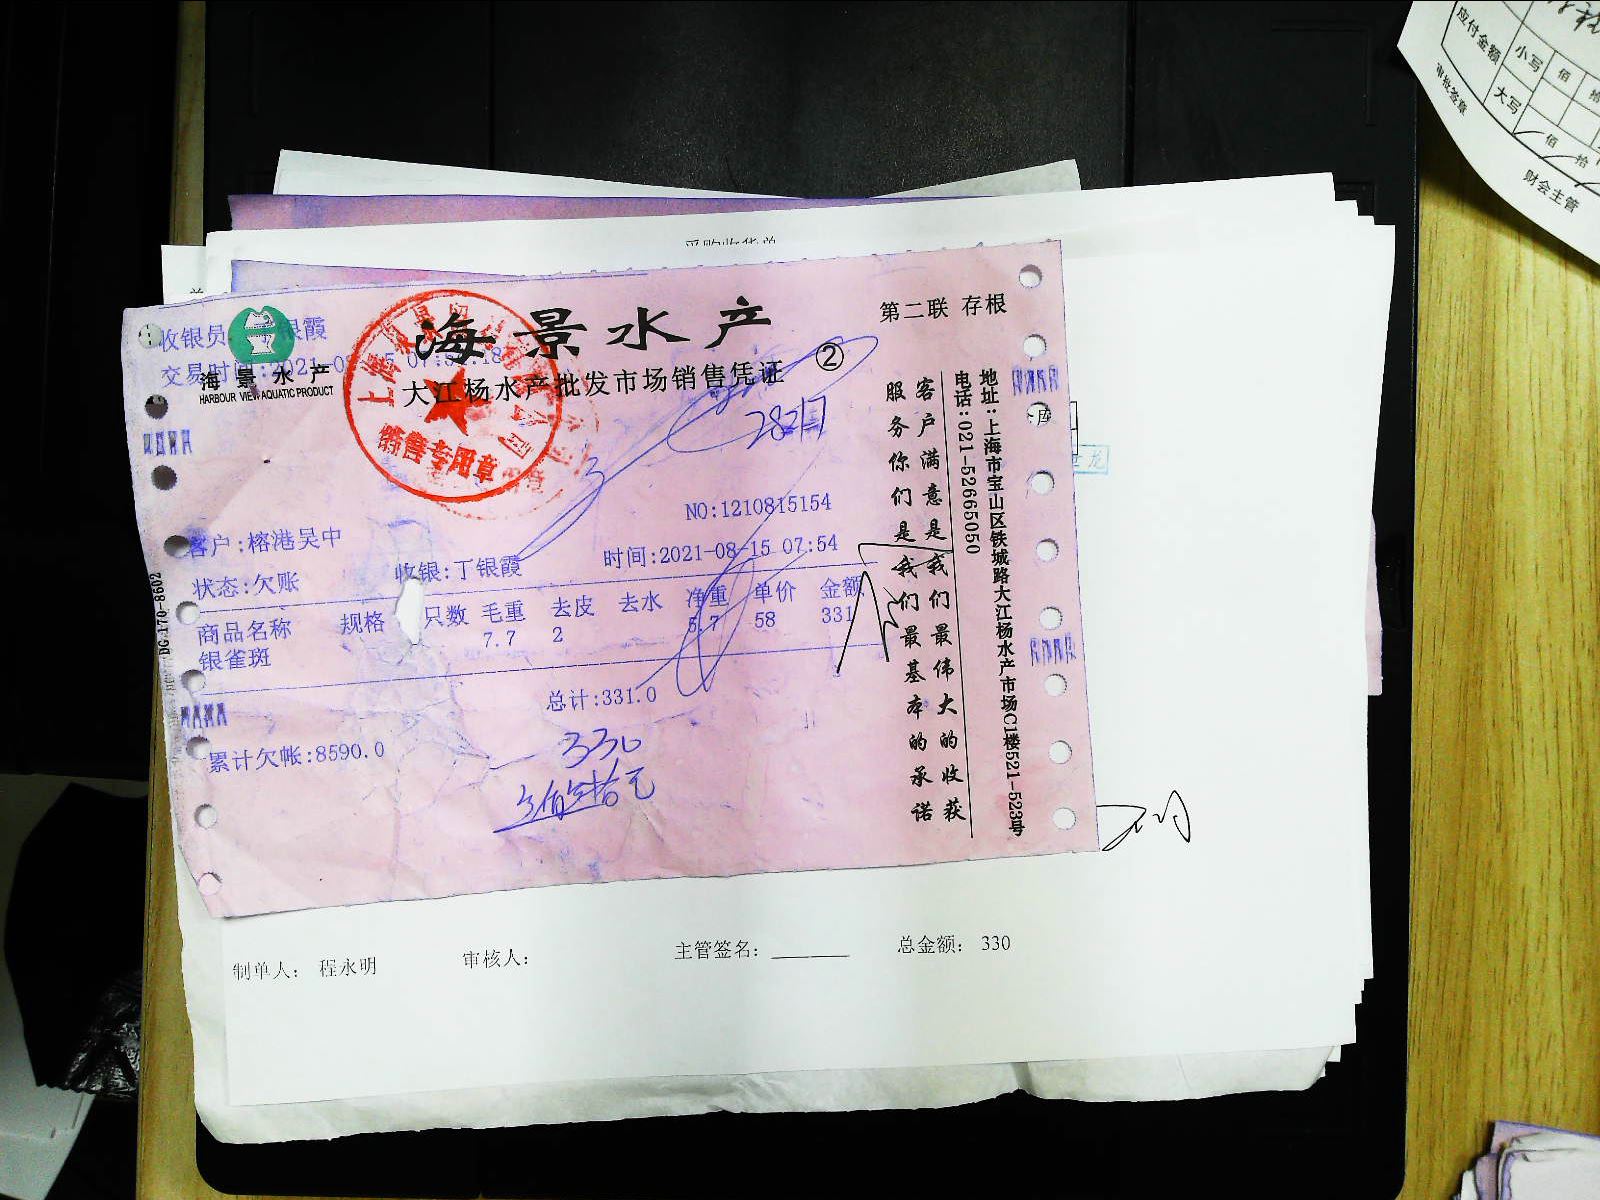 应付金额 小写 佰 拾
大写 佰 拾
审批签章
财会主管
采购收货单
收银员:丁银霞
海景水产
第二联 存根
海景水产
HARBOUR VIEW AQUATIC PRODUCT
大江杨水产批发市场销售凭证 ②
销售专用章
NO:1210815154
客户:榕港吴中
状态:欠账 收银:丁银霞 时间:2021-08-15 07:54
商品名称 规格 只数 毛重 去皮 去水 净重 单价 金额
银雀斑 7.7 2 5.7 58 331
总计:331.0
累计欠帐:8590.0
330
叁佰叁拾元
客户满意是我们最伟大的收获
服务你们是我们最基本的承诺
地址:上海市宝山区铁城路大江杨水产市场C1楼521-523号
电话:021-52665050
DG-170-8602
库
龙
制单人: 程永明 审核人: 主管签名: 总金额: 330